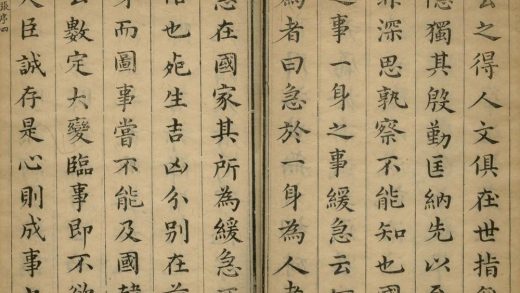 公之得人文俱在世指
隱獨其殷勤匡納先以
深思孰察不能知也
之事一身之事緩急云
為者曰急於一身為人
急在國家其所為緩急
也死生吉凶介別在
而圖事嘗不能及國
數定大變臨事即不欲
臣誠存是心則成事
張序四